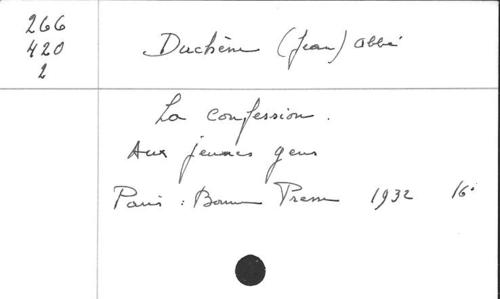 266
420
2
Duchêne (Jean) abbé
La confession.
Aux jeunes gens
Paris : Bonne Presse 1932 16°